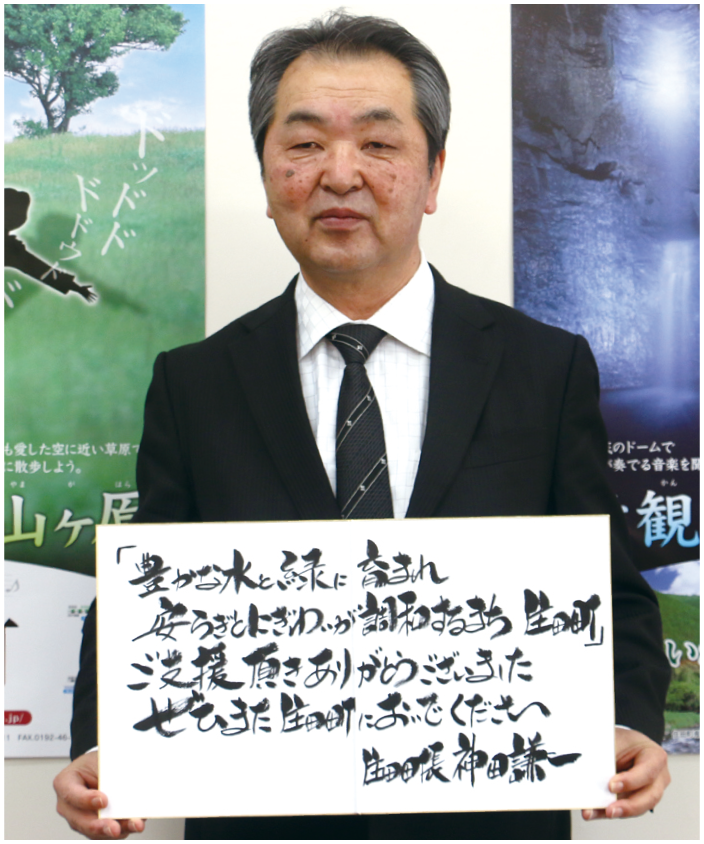 ドッドド
ドドウド
ド
も愛した空に近い草原で
に散歩しよう。
やま が はら
山ヶ原
.jp/
FAX.0192-46-
のドームで
が奏でる音楽を
かん
観
い
「豊かな水と緑に 育まれ
安らぎとにぎわいが調和するまち 住田町」
ご支援頂きありがとうございました
ぜひまた住田町においでください
住田町長 神田謙一